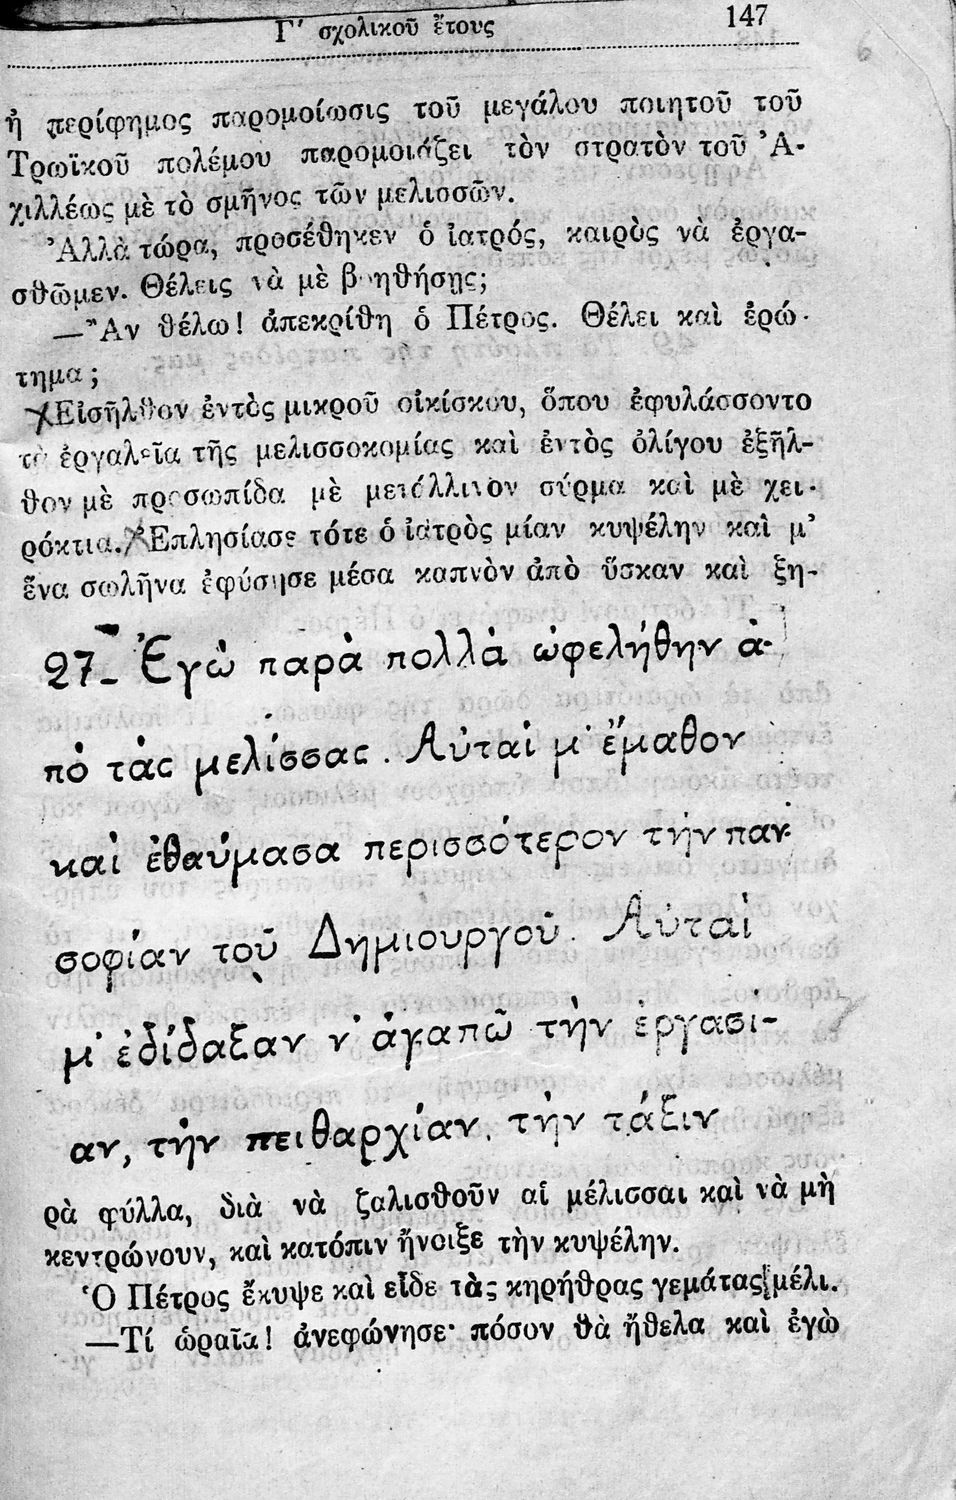 Γ′ σχολικοῦ ἔτους 147
ἡ περίφημος παρομοίωσις τοῦ μεγάλου ποιητοῦ τοῦ
Τρωϊκοῦ πολέμου παρομοιάζει τὸν στρατὸν τοῦ Ἀ-
χιλλέως μὲ τὸ σμῆνος τῶν μελισσῶν.
Ἀλλὰ τώρα, προσέθηκεν ὁ ἰατρός, καιρὸς νὰ ἐργα-
σθῶμεν. Θέλεις νὰ μὲ βοηθήσῃς;
—Ἂν θέλω! ἀπεκρίθη ὁ Πέτρος. Θέλει καὶ ἐρώ-
τημα;
Εἰσῆλθον ἐντὸς μικροῦ οἰκίσκου, ὅπου ἐφυλάσσοντο
τὰ ἐργαλεῖα τῆς μελισσοκομίας καὶ ἐντὸς ὀλίγου ἐξῆλ-
θον μὲ προσωπίδα μὲ μετάλλινον σύρμα καὶ μὲ χει-
ρόκτια. Ἐπλησίασε τότε ὁ ἰατρὸς μίαν κυψέλην καὶ μ’
ἕνα σωλῆνα ἐφύσησε μέσα καπνὸν ἀπὸ ὕσκαν καὶ ξη-
27– Ἐγὼ παρὰ πολλὰ ὠφελήθην ἀ-
πὸ τὰς μελίσσας. Αὐταὶ μ’ ἔμαθον
καὶ ἐθαύμασα περισσότερον τὴν παν-
σοφίαν τοῦ Δημιουργοῦ. Αὐταὶ
μ’ ἐδίδαξαν ν’ ἀγαπῶ τὴν ἐργασί-
αν, τὴν πειθαρχίαν, τὴν τάξιν
ρὰ φύλλα, διὰ νὰ ζαλισθοῦν αἱ μέλισσαι καὶ νὰ μὴ
κεντρώνουν, καὶ κατόπιν ἤνοιξε τὴν κυψέλην.
Ὁ Πέτρος ἔκυψε καὶ εἶδε τὰς κηρήθρας γεμάτας μέλι.
—Τί ὡραῖα! ἀνεφώνησε· πόσον θὰ ἤθελα καὶ ἐγὼ